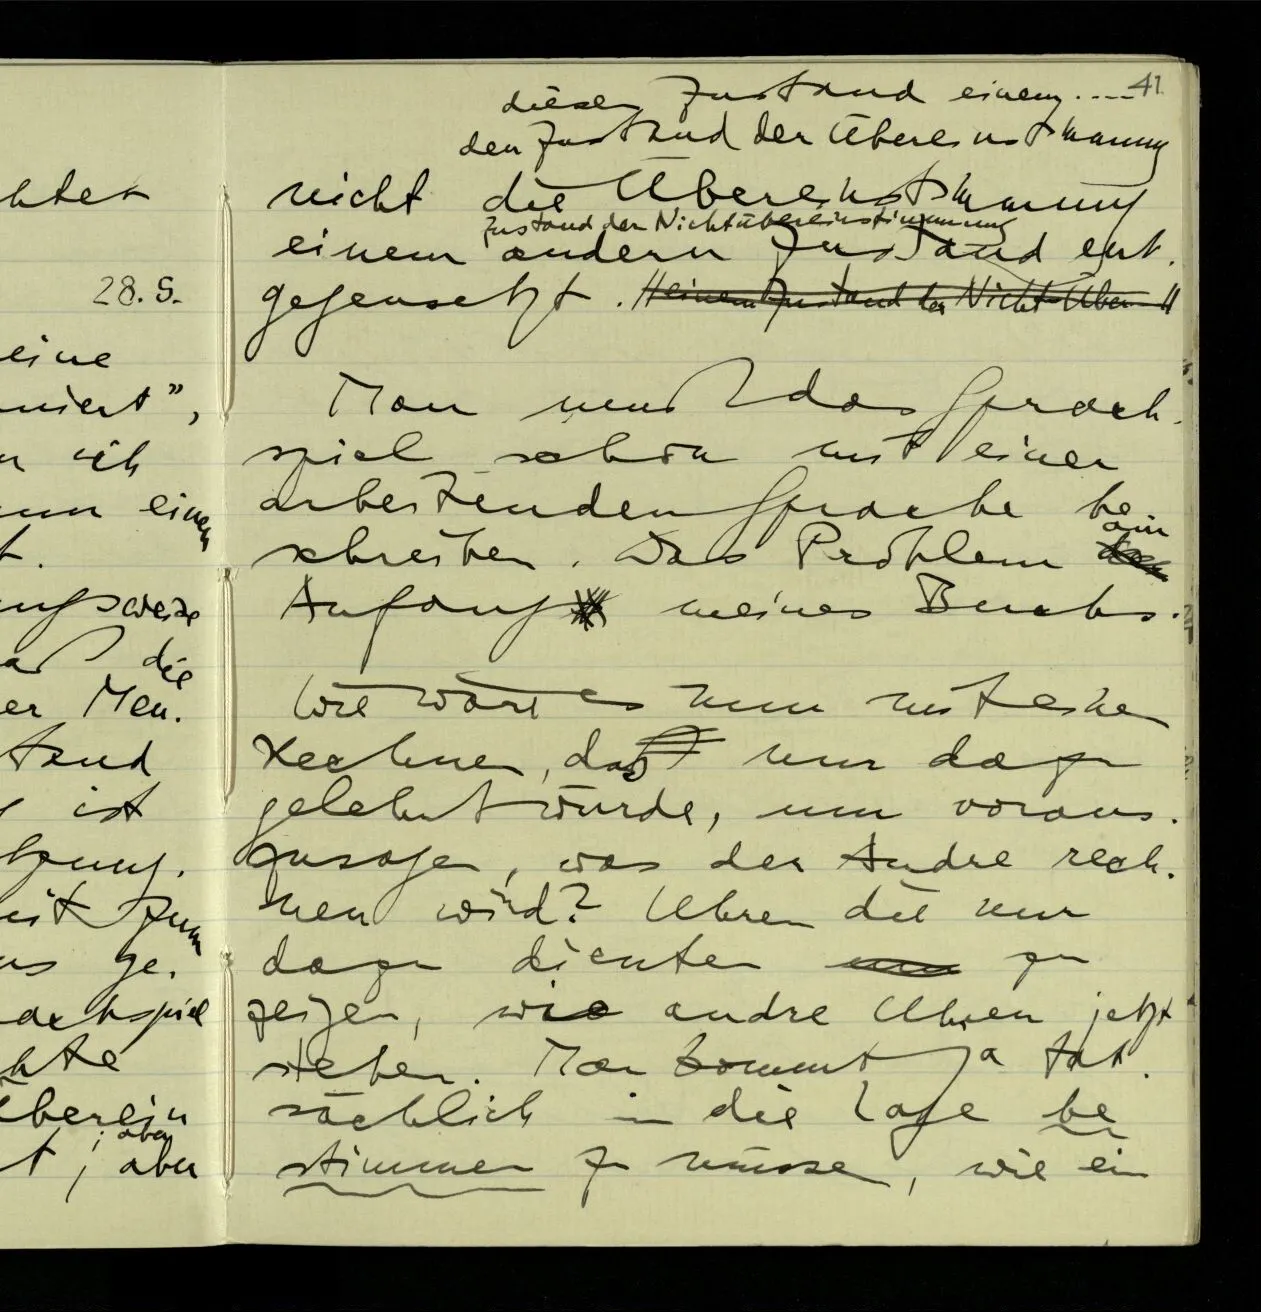 htet
28.9.
eine
niert",
n ich
nun einen
t.
ungsweise
aß die
er Men-
tand
ist
tzung.
eit zum
us ge-
achspiel
hte
überein
; aber
t; aber
41
diesen Zustand einem ....
den Zustand der Übereinstimmung
nicht die Übereinstimmung
Zustand der Nichtübereinstimmung
einem andern Zustand ent-
gegensetzt. //einem Zustand der Nicht-Über- //
Man muß das Sprach-
spiel schon mit einer
arbeitenden Sprache be-
am
schreiben. Das Problem des
Anfangs meines Buchs.
Wie wäre es nun mit einem
Rechnen, das nur dazu
gelehrt würde, um voraus-
zusagen, was der Andre rech-
nen wird? Uhren die nur
dazu dienten um zu
zeigen, wie andre Uhren jetzt
stehen. Man kommt ja tat-
sächlich in die Lage be-
stimmen zu müssen, wie ein